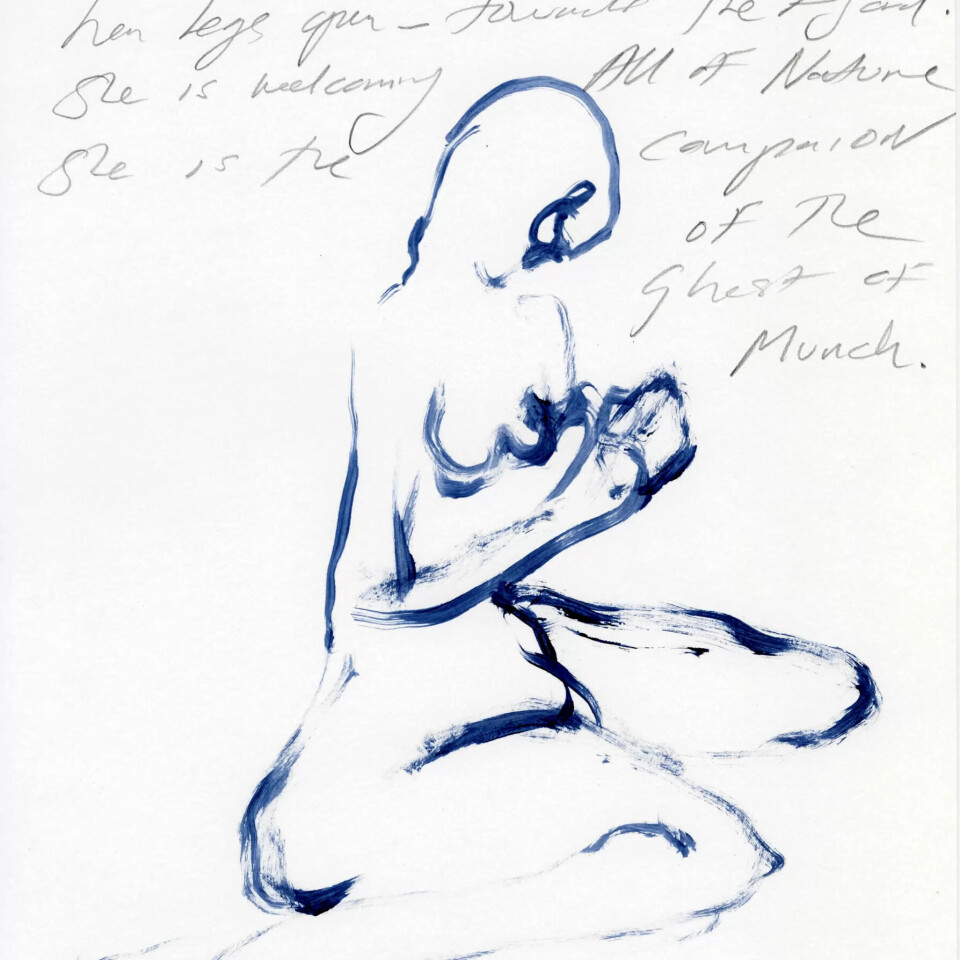 her legs open - towards the Fjord.
She is welcoming All of Nature
She is the companion
of the
Ghost of
Munch.